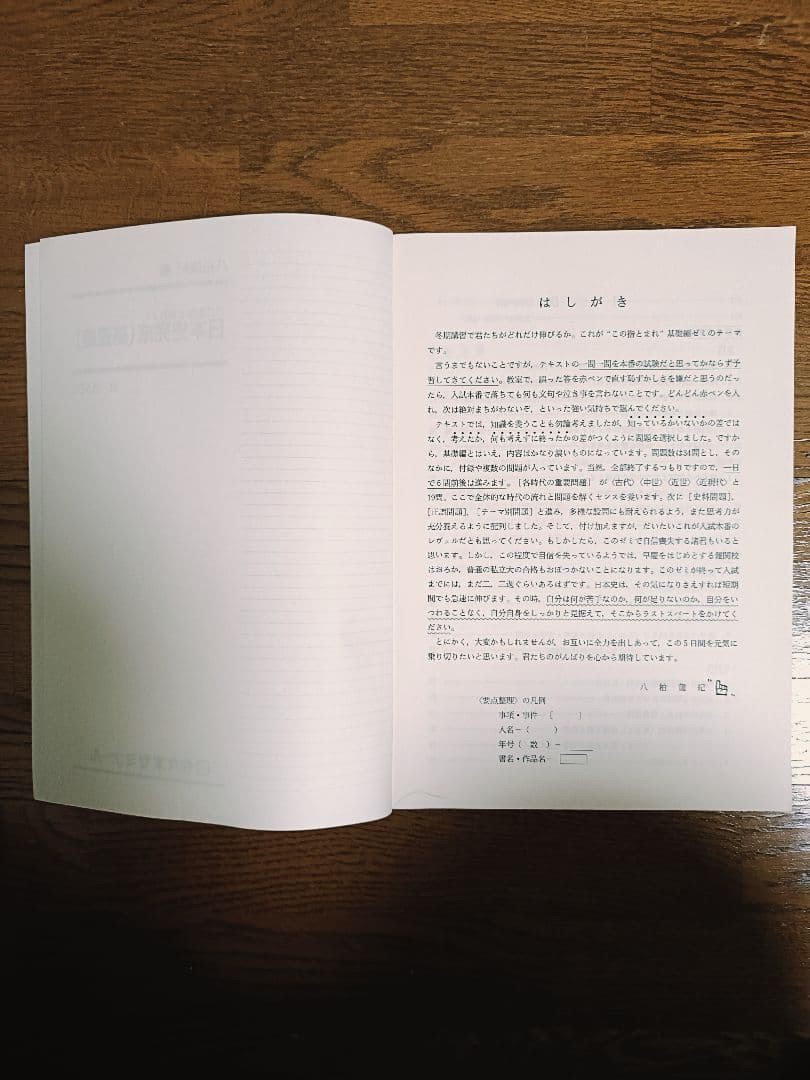 はしがき
冬期講習で君たちがどれだけ伸びるか。これが“この指とまれ”基礎編ゼミのテーマ
です。
言うまでもないことですが、テキストの一問一問を本番の試験だと思ってかならず予
習してきてください。教室で、誤った答を赤ペンで直す恥ずかしさを嫌だと思うのだっ
たら、入試本番で落ちても何も文句や泣き事を言わないことです。どんどん赤ペンを入
れ、次は絶対まちがわないぞ、といった強い気持ちで臨んでください。
テキストでは、知識を養うことも勿論考えましたが、知っているかいないかの差では
なく、考えたか、何も考えずに終ったかの差がつくように問題を選択しました。ですか
ら、基礎編とはいえ、内容はかなり濃いものになっています。問題数は34問とし、その
なかに、付録や複数の問題が入っています。当然、全部終了するつもりですので、一日
で6問前後は進みます。［各時代の重要問題］が〈古代〉〈中世〉〈近世〉〈近現代〉と
19問。ここで全体的な時代の流れと問題を解くセンスを養います。次に［史料問題］、
［正誤問題］、［テーマ別問題］と進み、多様な設問にも耐えられるよう、また思考力が
充分養えるように配列しました。そして、付け加えますが、だいたいこれが入試本番の
レヴェルだとも思ってください。もしかしたら、このゼミで自信喪失する諸君もいると
思います。しかし、この程度で自信を失っているようでは、早慶をはじめとする難関校
はおろか、普通の私立大の合格もおぼつかないことになります。このゼミが終って入試
までには、まだ二、三週ぐらいあるはずです。日本史は、その気になりさえすれば短期
間でも急速に伸びます。その時、自分は何が苦手なのか、何が足りないのか、自分をい
つわることなく、自分自身をしっかりと見据えて、そこからラストスパートをかけてく
ださい。
とにかく、大変かもしれませんが、お互いに全力を出しあって、この5日間を元気に
乗り切りたいと思います。君たちのがんばりを心から期待しています。
八柏龍紀
〈要点整理〉の凡例
事項・事件−［　　］
人名−（　　）
年号（　数　）−
書名・作品名−